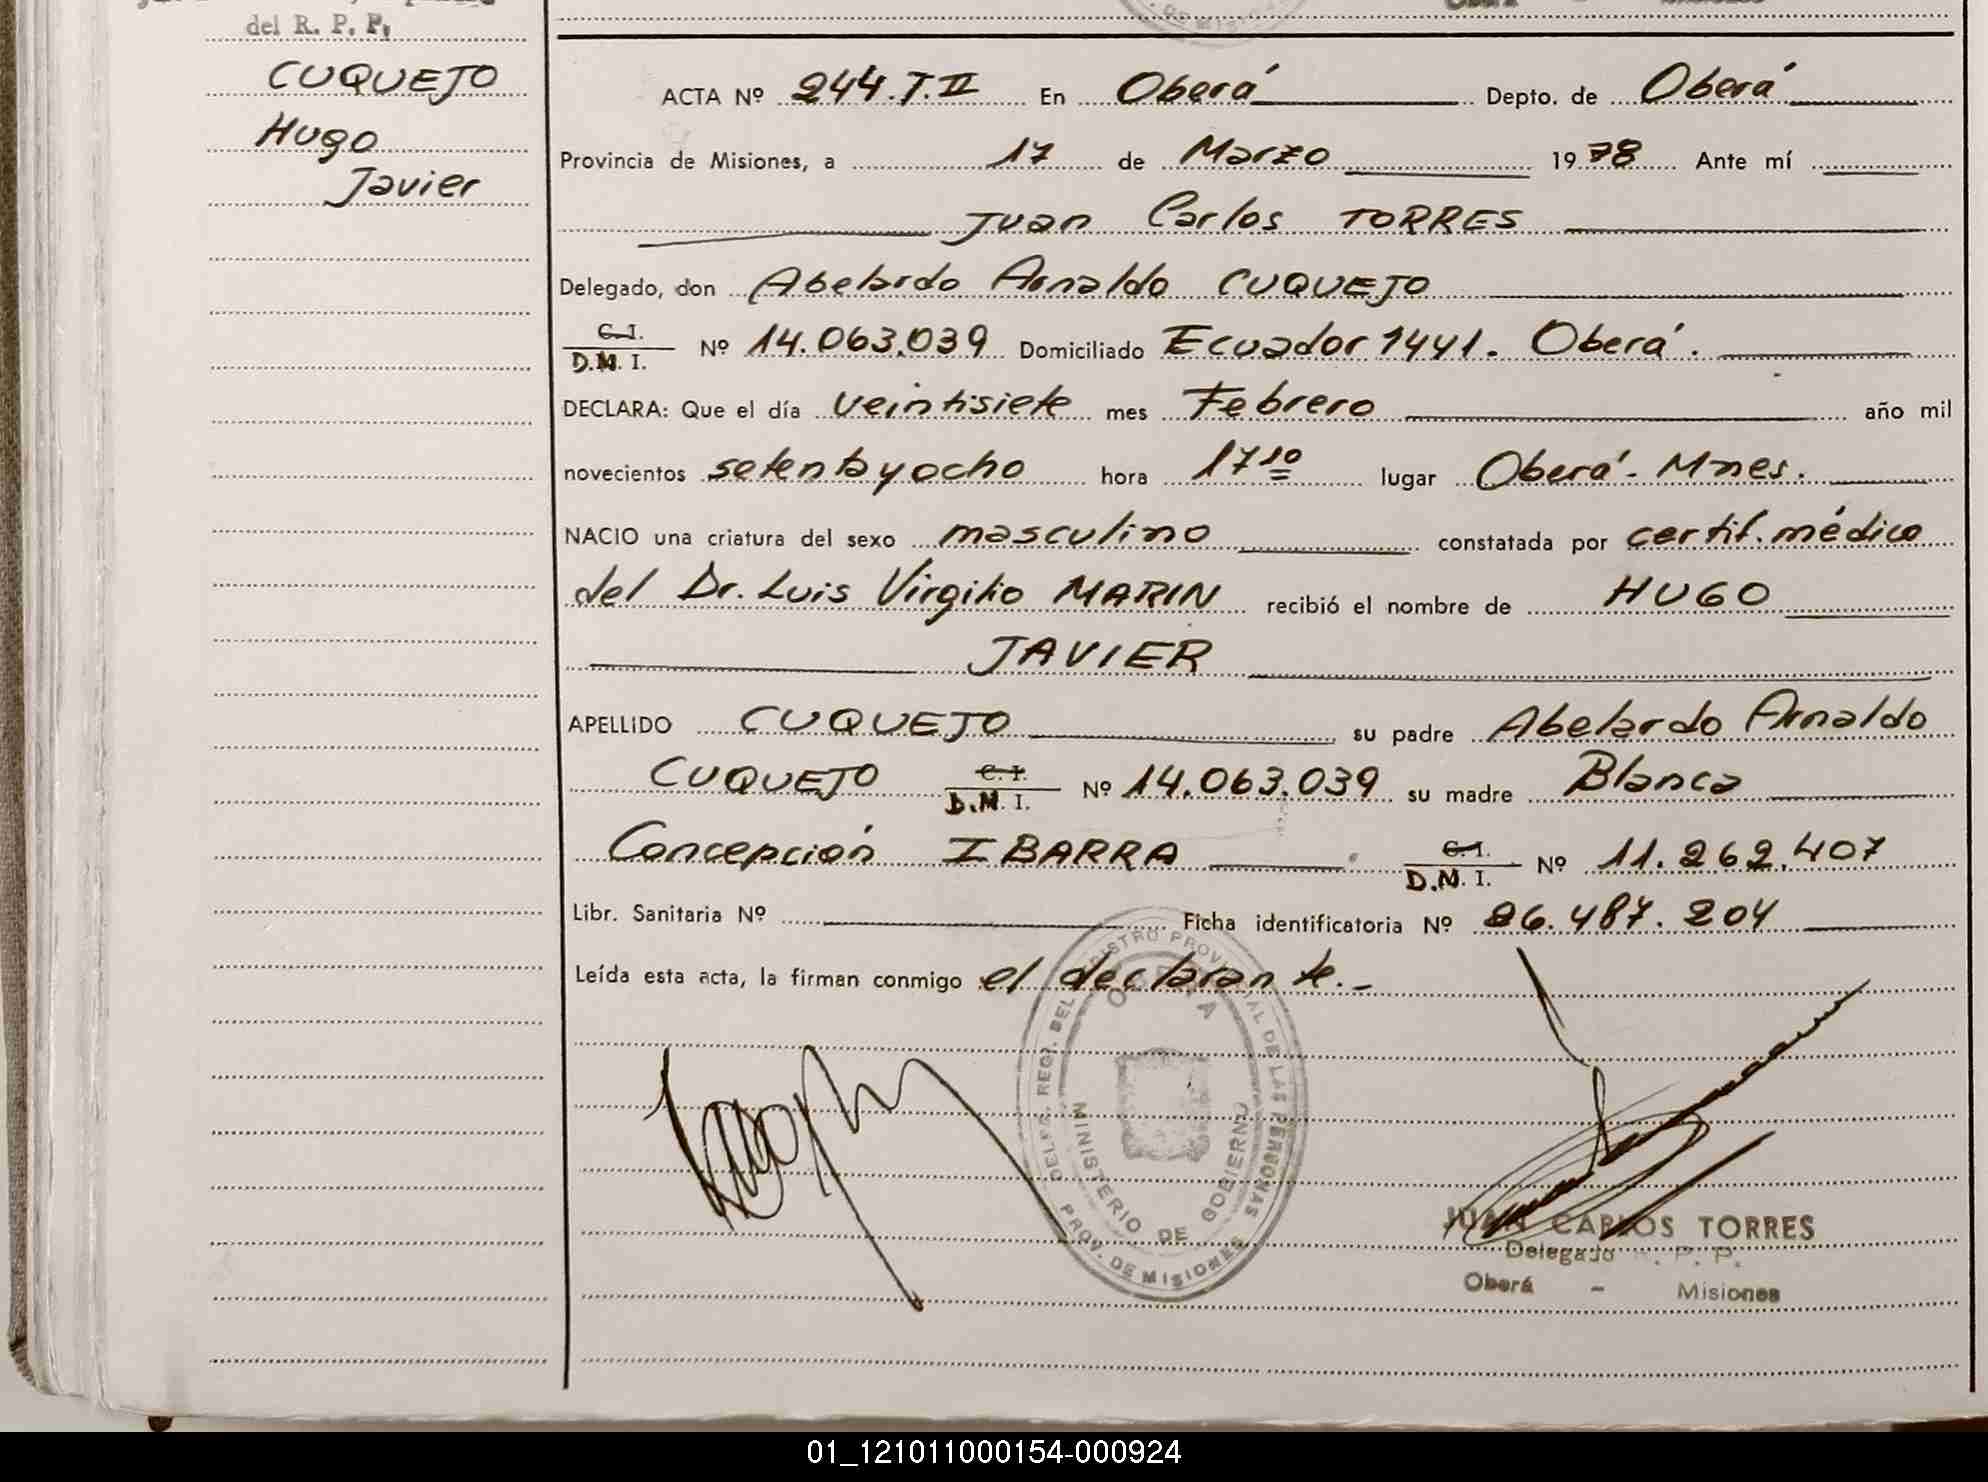 del R. P. P.
CUQUEJO
Hugo
Javier
ACTA Nº 244. T. II En Oberá Depto. de Oberá
Provincia de Misiones, a 17 de Marzo 1978 Ante mí
Juan Carlos TORRES
Delegado, don Abelardo Arnaldo CUQUEJO
C. I.
D.M. I. Nº 14.063.039 Domiciliado Ecuador 1441. Oberá.
DECLARA: Que el día veintisiete mes Febrero año mil
novecientos setenta y ocho hora 17 10 lugar Oberá - Mnes.
NACIO una criatura del sexo masculino constatada por certif. médico
del Dr. Luis Virgilio MARIN recibió el nombre de HUGO
JAVIER
APELLIDO CUQUEJO su padre Abelardo Arnaldo
CUQUEJO C. I. D.M. I. Nº 14.063.039 su madre Blanca
Concepción IBARRA C. I. D.M. I. Nº 11.262.407
Libr. Sanitaria Nº Ficha identificatoria Nº 26.487.204
Leída esta acta, la firman conmigo el declarante.-
DELEG. REGT. DEL REGISTRO PROVINCIAL DE LAS PERSONAS
OBERA
MINISTERIO DE GOBIERNO
PROV. DE MISIONES
JUAN CARLOS TORRES
Delegado R. P. P.
Oberá - Misiones
01_121011000154-000924